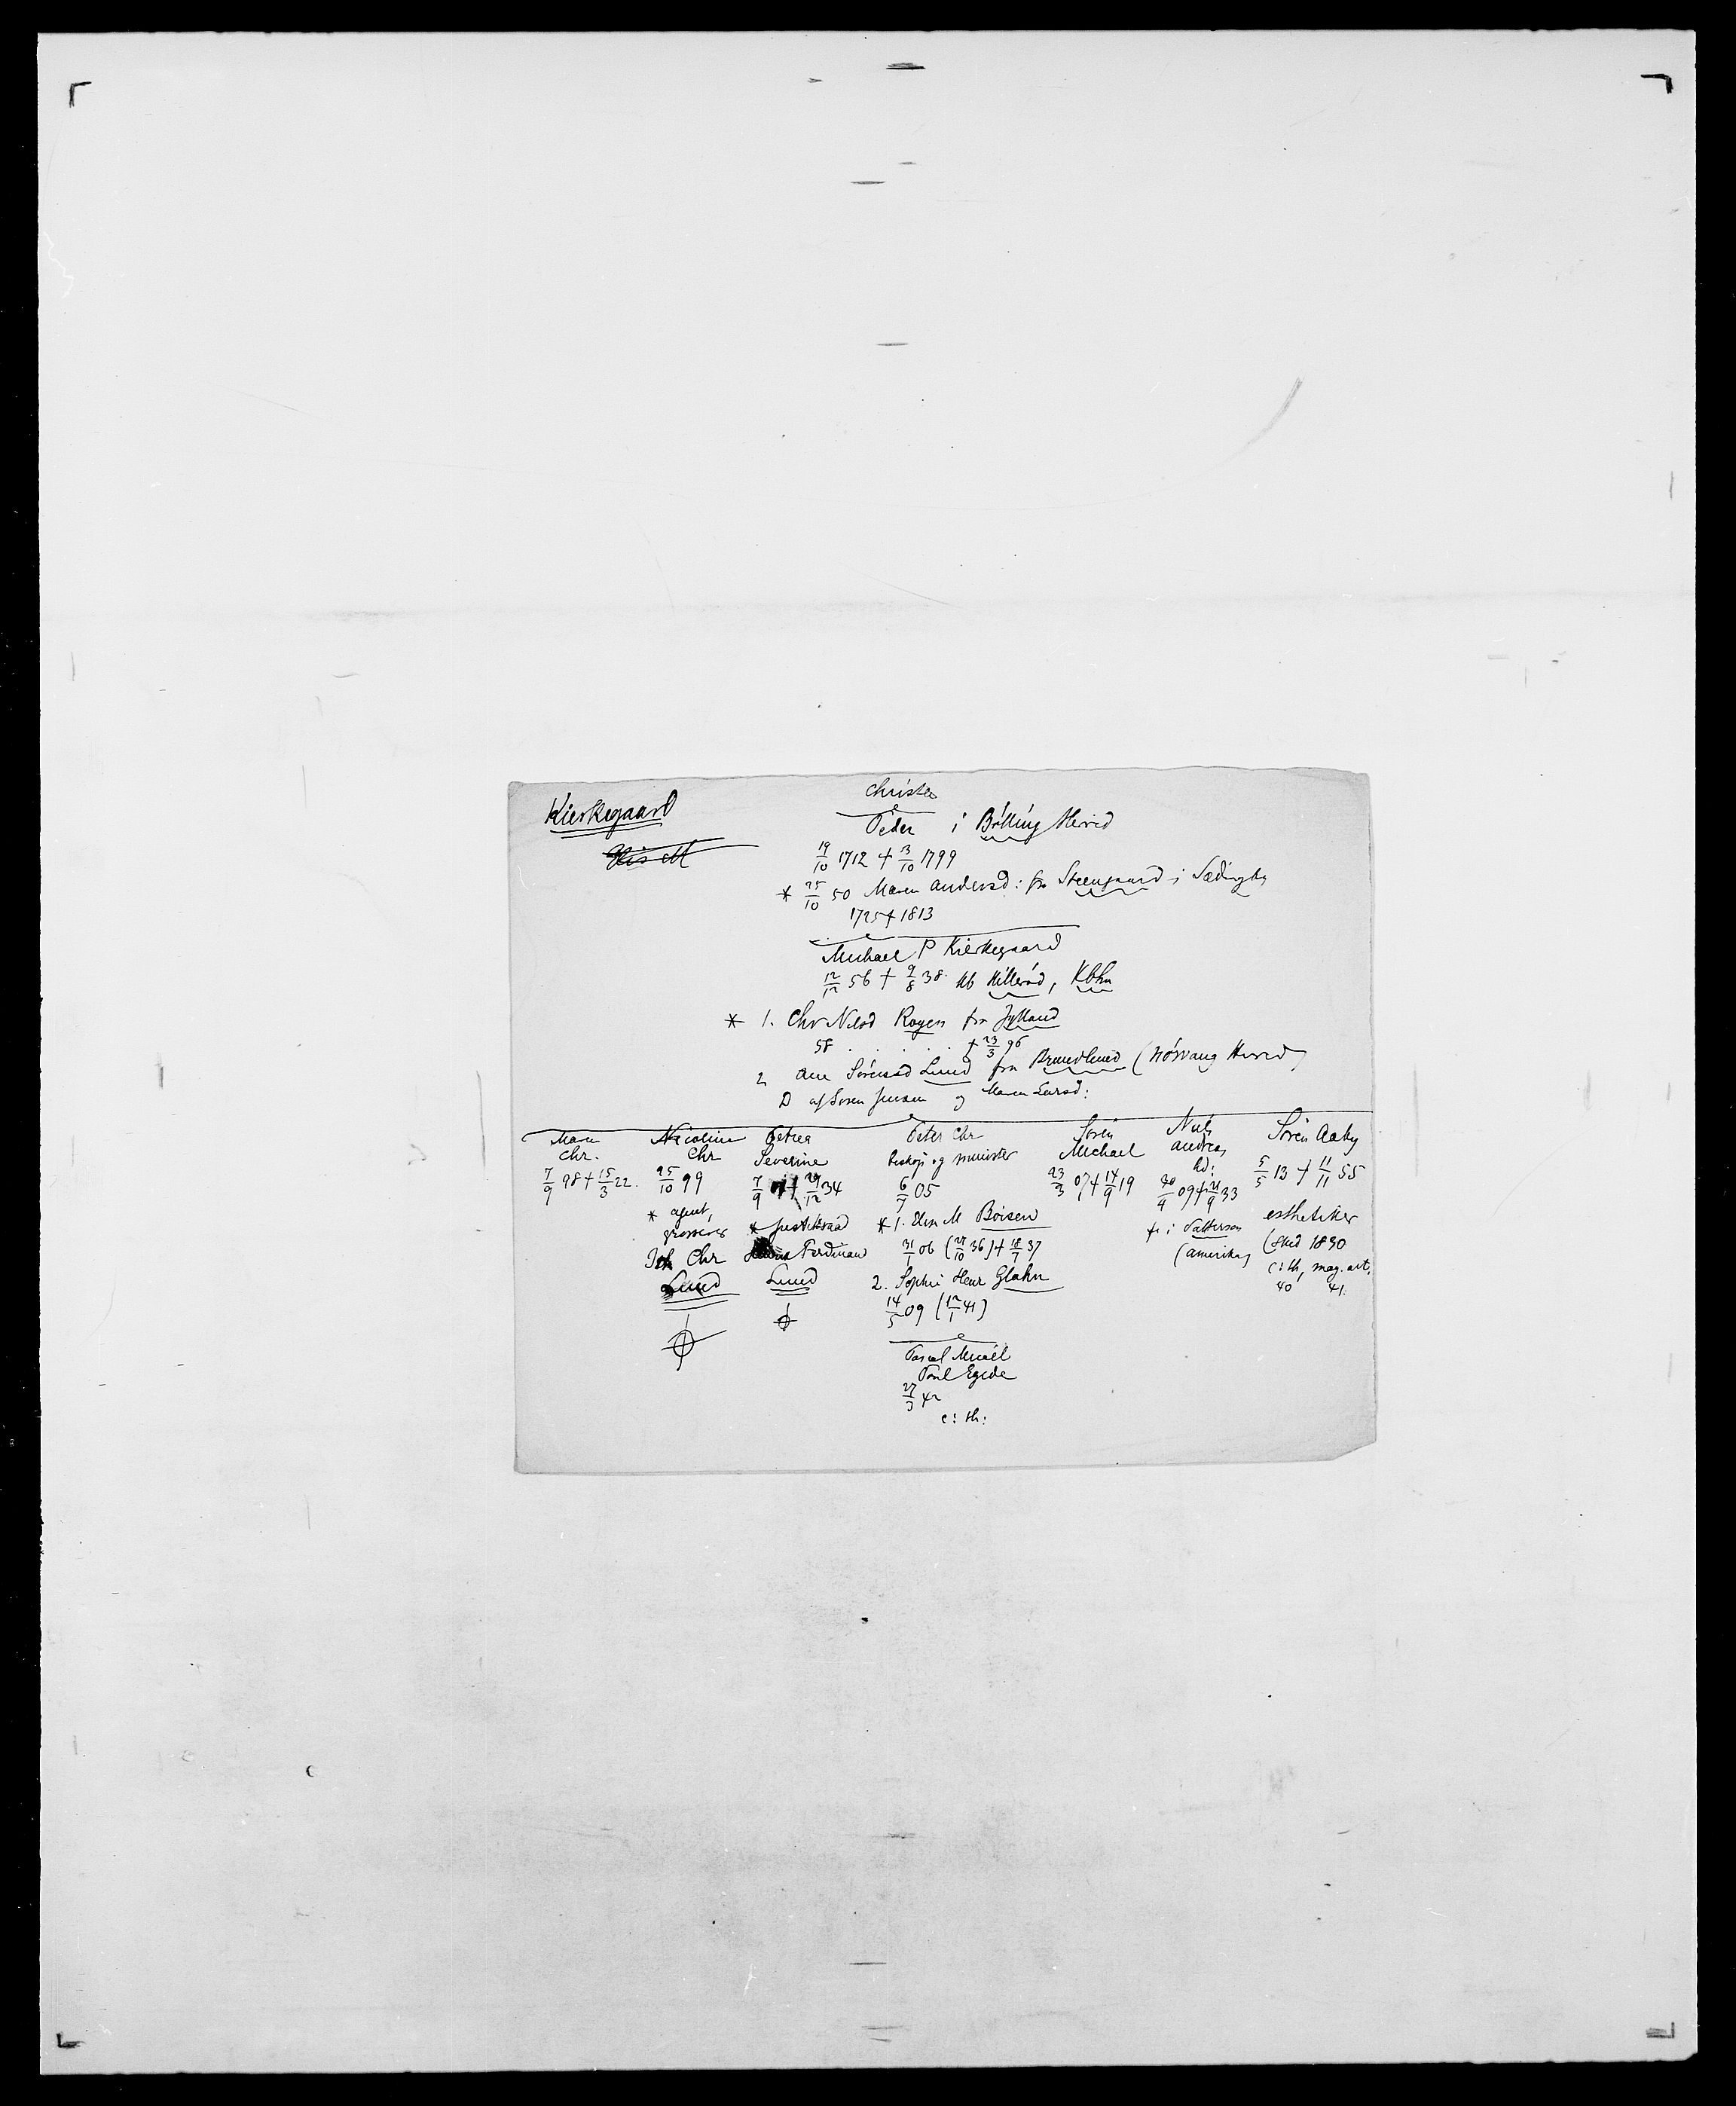 Kierkegaard
Christen
Peder i Bölling Herred
19/10 1712 † 13/10 1799
* 25/10 50 Maren Andersd: fra Steengaard i Sædingby
1725 † 1813
Michael P Kierkegaard
12/12 56 † 9/8 38. Hb Hilleröd, Kbhn
* 1. Chr Nilsd Royen fra Jylland
58 . . . . . . † 23/3 96
2 Ane Sörensd Lund fra Brandlund (Nörvang Herred)
D af Soren Jensen og Maren Larsd:
Maren Chr.
7/9 98 † 15/3 22.
Nicoline Chr
25/10 99
* agent, grosserer
Joh Chr
Lund
Petrea Severine
7/9 01 † 29/12 34
* justitsraad
Ferdinan
Lund
Peter Chr
biskop og minister
6/7 05
* 1. Elise M Boisen
31/1 06 (21/10 36) † 18/7 37
2. Sophie Henr Glahn
14/5 09 (12/1 41)
Pascal Micael
Poul Egede
27/3 42
c: th:
Sören Michael
23/3 07 † 14/9 19
Niels Andreas
hd:
30/4 09 † 21/9 33
† i Patterson
(Amerika)
Sören Aaby
5/5 13 † 11/11 55
esthetiker
(stud 1830
c: th, mag. art.
40 41.